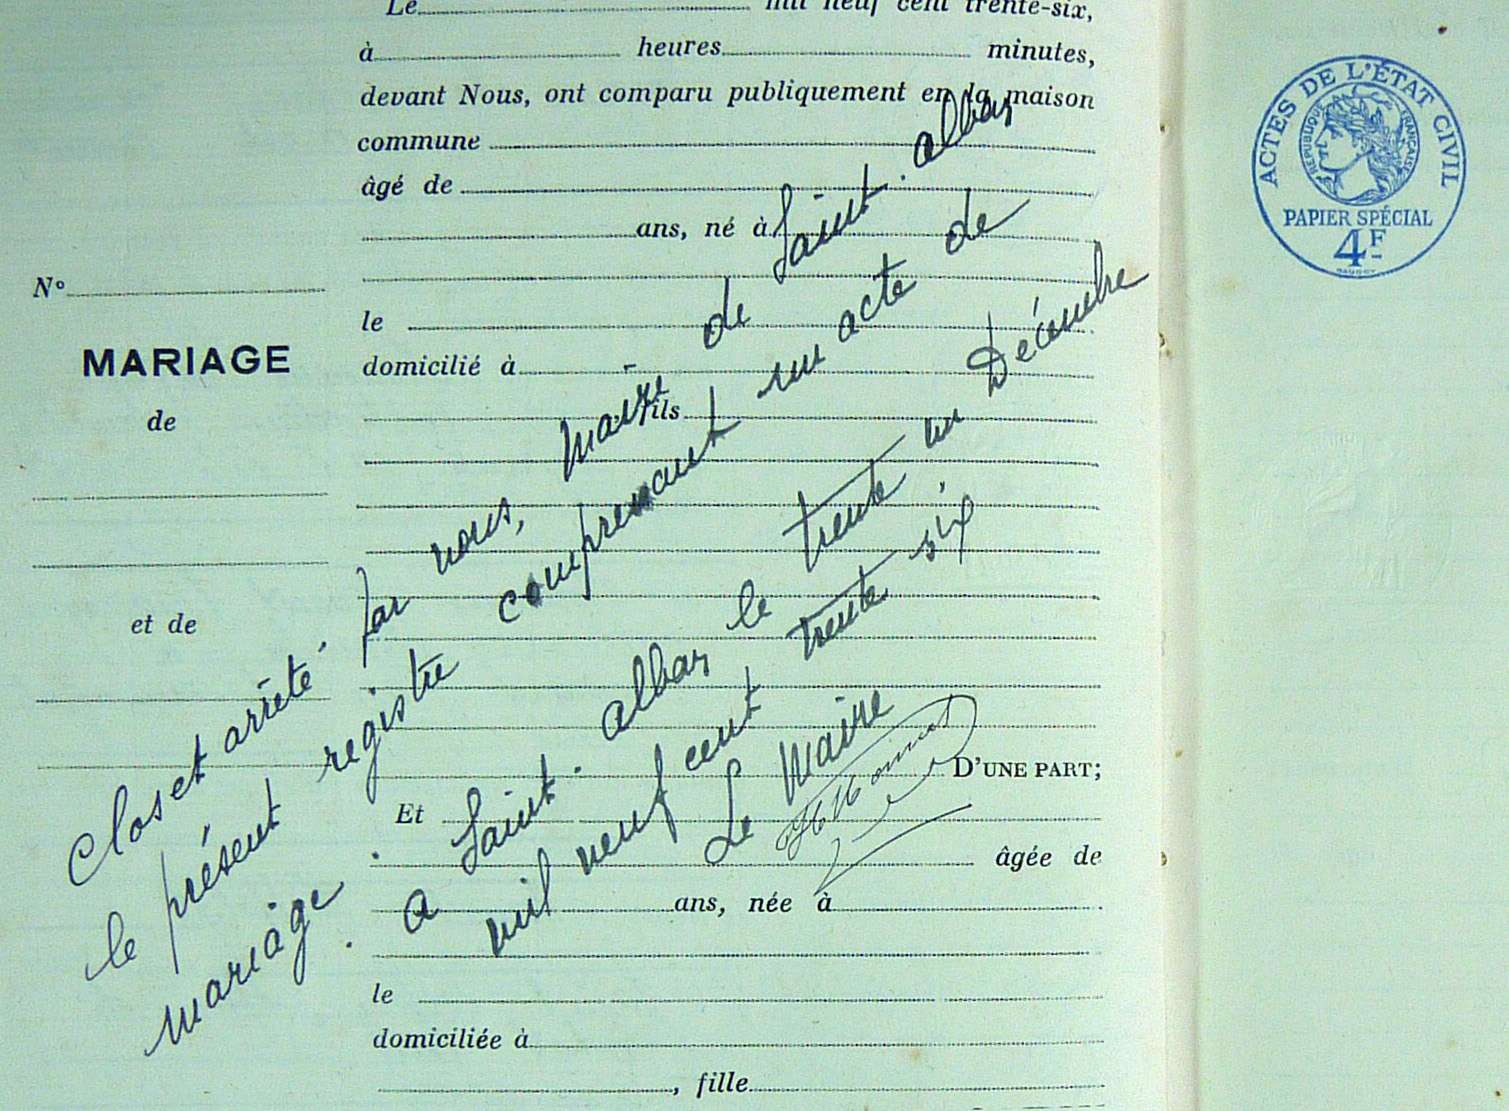 Le mil neuf cent trente-six,
à heures minutes,
devant Nous, ont comparu publiquement en la maison
commune
âgé de
ans, né à
le
domicilié à
fils
D'UNE PART;
Et
âgée de
ans, née à
le
domiciliée à
, fille
N°
MARIAGE
de
et de
Clos et arrêté par nous, Maire de Saint. Alban
le présent registre comprenant un acte de
mariage. A Saint. Alban le trente un Décembre
mil neuf cent trente six
Le Maire
ACTES DE L'ÉTAT CIVIL
RÉPUBLIQUE FRANÇAISE
PAPIER SPÉCIAL
4F